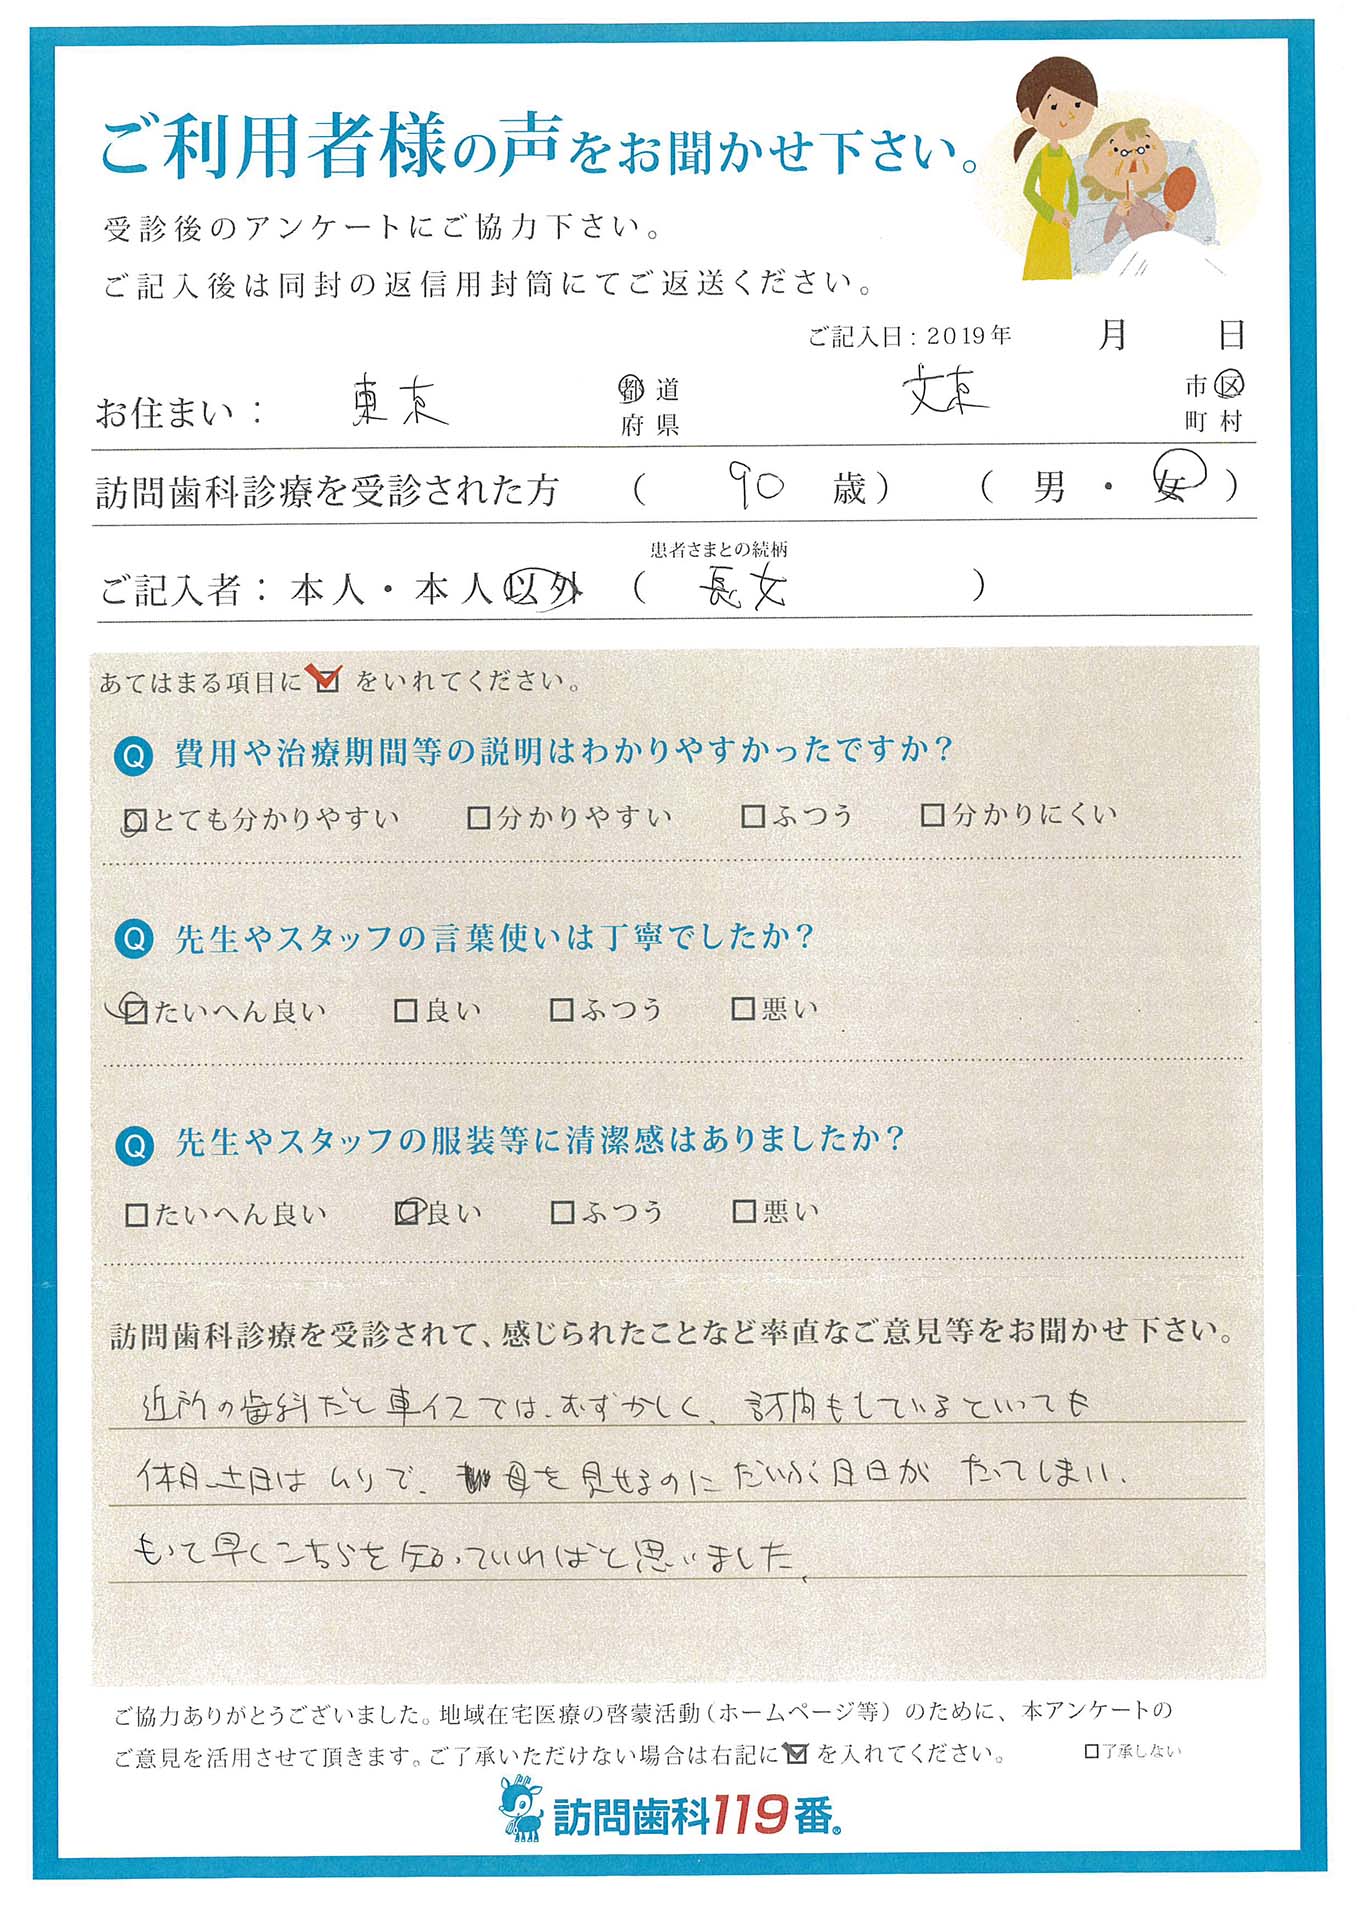 ご利用者様の声をお聞かせ下さい。
受診後のアンケートにご協力下さい。
ご記入後は同封の返信用封筒にてご返送ください。
ご記入日：2019年 月 日
お住まい： 東京 都道府県 文京 市区町村
訪問歯科診療を受診された方 （ 90 歳） （ 男 ・ 女 ）
患者さまとの続柄
ご記入者：本人・本人以外 （ 長女 ）
あてはまる項目に☑をいれてください。
Q 費用や治療期間等の説明はわかりやすかったですか？
☑とても分かりやすい □分かりやすい □ふつう □分かりにくい
Q 先生やスタッフの言葉使いは丁寧でしたか？
☑たいへん良い □良い □ふつう □悪い
Q 先生やスタッフの服装等に清潔感はありましたか？
□たいへん良い ☑良い □ふつう □悪い
訪問歯科診療を受診されて、感じられたことなど率直なご意見等をお聞かせ下さい。
近所の歯科だと車イスでは、むずかしく、訪問もしているといっても
休日、土日はムリで、母を見せるのにだいぶ月日がたってしまい、
もって早くこちらを知っていればと思いました、
ご協力ありがとうございました。地域在宅医療の啓蒙活動（ホームページ等）のために、本アンケートの
ご意見を活用させて頂きます。ご了承いただけない場合は右記に☑を入れてください。 □了承しない
訪問歯科119番。